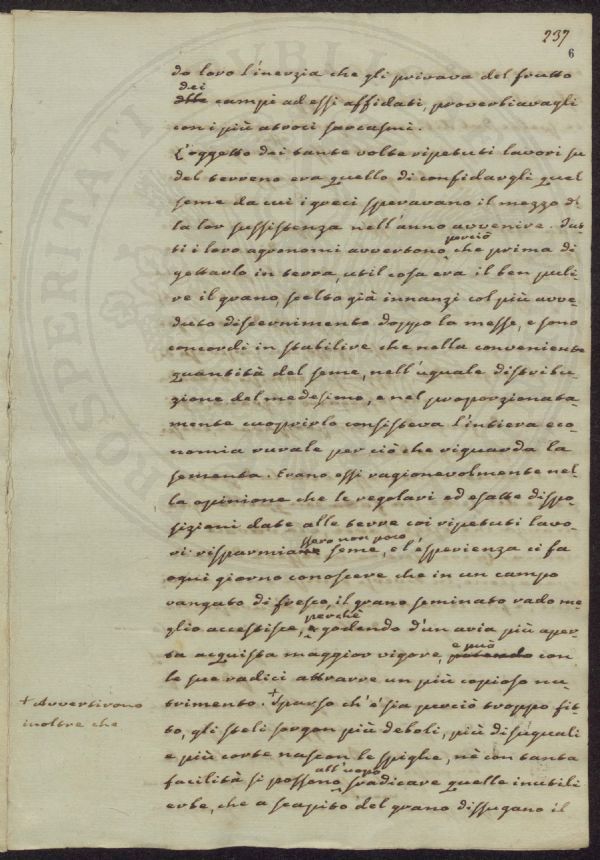 237
6
do loro l'inerzia che gli privava del frutto
dei
campi ad essi affidati, proverbiavagli
con i più atroci sarcasmi.
L'oggetto dei tante volte ripetuti lavori su
del terreno era quello di confidargli quel
seme da cui i greci speravano il mezzo di
la lor sussistenza nell'anno avvenire. Tut-
perciò
ti i loro agronomi avvertono che prima di
gettarlo in terra, util cosa era il ben puli-
re il grano, scelto già innanzi col più avve-
duto discernimento doppo la messe, e sono
concordi in stabilire che nella conveniente
quantità del seme, nell'uguale distribu-
zione del medesimo, e nel proporzionata-
mente cuoprirlo consisteva l'intiera eco-
nomia rurale per ciò che riguarda la
sementa. Erano essi ragionevolmente nel-
la opinione che le regolari ed esatte dispo-
sizioni date alle terre coi ripetuti lavo-
ssero non poco
ri risparmia seme, e l'esperienza ci fa
ogni giorno conoscere che in un campo
vangato di fresco, il grano seminato rado me-
perchè
glio accestisce, godendo d'un aria più aper-
e può
ta acquista maggior vigore, potendo con
le sue radici attrarre un più copioso nu-
trimento. + Sparso ch'e' sia perciò troppo fit-
+ Avvertirono
inoltre che
to, gli steli sorgon più deboli, più disuguali
e più corte nascon le spighe, nè con tanta
all'uopo
facilità si possono sradicare quelle inutili
erbe, che a scapito del grano dissugano il